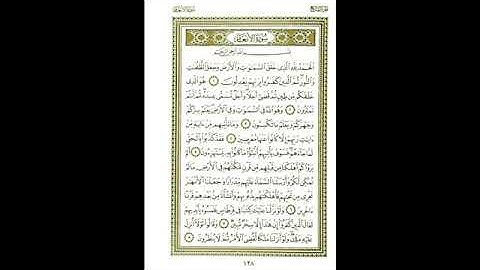 الجزء السابع سورة الأنعام
سورة الأنعام
بسم الله الرحمن الرحيم
الحمد لله الذي خلق السموات والأرض وجعل الظلمت
والنور ثم الذين كفروا بربهم يعدلون ١ هو الذي
خلقكم من طين ثم قضى أجلا وأجل مسمى عنده ثم أنتم
تمترون ٢ وهو الله في السموات وفي الأرض يعلم سركم
وجهركم ويعلم ما تكسبون ٣ وما تأتيهم من ءاية من
ءايت ربهم إلا كانوا عنها معرضين ٤ فقد كذبوا بالحق
لما جاءهم فسوف يأتيهم أنبؤا ما كانوا به يستهزءون ٥ ألم
يروا كم أهلكنا من قبلهم من قرن مكنهم في الأرض ما لم
نمكن لكم وأرسلنا السماء عليهم مدرارا وجعلنا الأنهر
تجري من تحتهم فأهلكنهم بذنوبهم وأنشأنا من بعدهم قرنا
ءاخرين ٦ ولو نزلنا عليك كتبا في قرطاس فلمسوه بأيديهم
لقال الذين كفروا إن هذا إلا سحر مبين ٧ وقالوا لولا أنزل
عليه ملك ولو أنزلنا ملكا لقضي الأمر ثم لا ينظرون ٨
١٢٨